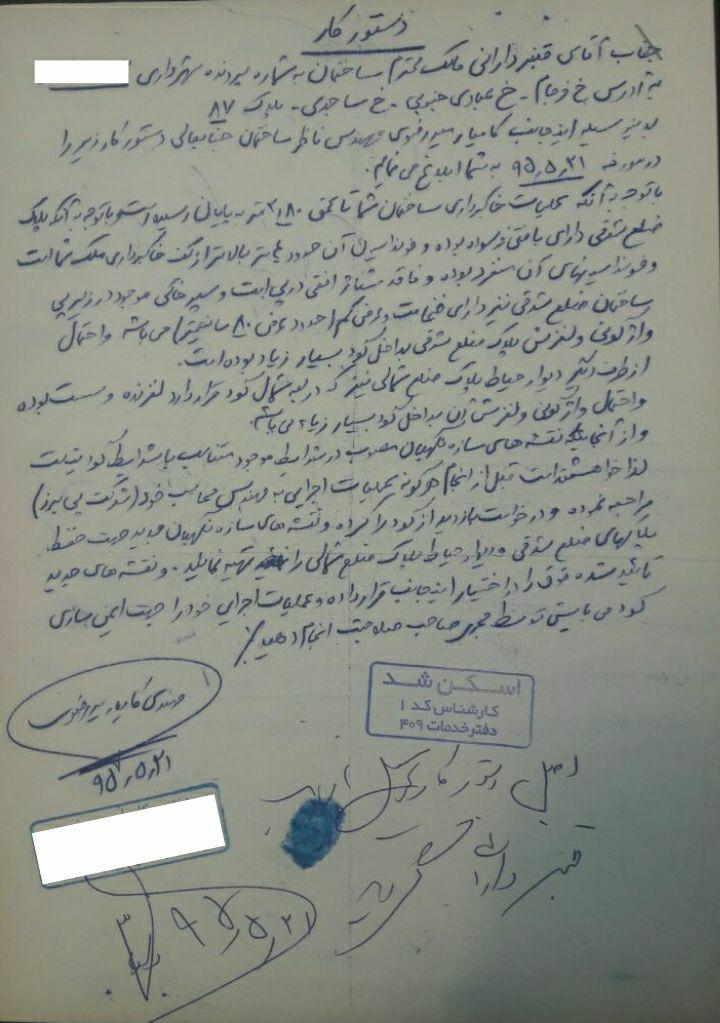 دستور کار
جناب آقای قنبر دارانی مالک محترم ساختمان به شماره پرونده شهرداری
به آدرس خ فرجام - خ عبادی جنوبی - خ ساجدی - پلاک ۸۷
بدینوسیله اینجانب کامیار میررضوی مهندس ناظر ساختمان جنابعالی دستور کار زیر را
در مورخه ۹۵,۵,۲۱ به شما ابلاغ می نمایم.
با توجه به آنکه عملیات خاکبرداری ساختمان شما تا عمق ۲,۸۰ متر به پایان رسیده است و با توجه به آنکه پلاک
ضلع شرقی دارای بافتی فرسوده بوده و فونداسیون آن حدود متر بالاتر از کف خاکبرداری ملک شما است
و فونداسیونهای آن منفرد بوده و فاقد شناژ افقی در پی است و سپر خاکی موجود در زیر پی
ساختمان ضلع شرقی نیز دارای ضخامت و عرض کم (حدود عرض ۸۰ سانتیمتر) می باشد و احتمال
واژگونی و لغزش پلاک ضلع شرقی بداخل گود بسیار زیاد بوده است.
از طرف دیگر دیوار حیاط پلاک ضلع شمالی نیز که در بر شمال گود قرار دارد لغزنده و سست بوده
و احتمال واژگونی و لغزش آن بداخل گود بسیار زیاد می باشد.
و از آنجائیکه نقشه های سازه نگهبان مصوب در شرایط موجود متناسب با شرایط گود نیست
لذا خواهشمند است قبل از انجام هرگونه عملیات اجرایی به مهندس محاسب خود (شرکت پی نیرو)
مراجعه نموده و درخواست بازدید از گود را کرده و نقشه های سازه نگهبان جدید جهت حفظ
پلاکهای ضلع شرقی و دیوار حیاط پلاک ضلع شمالی را تهیه نمائید. و نقشه های جدید
تائید شده فوق را در اختیار اینجانب قرار داده و عملیات اجرایی خود را جهت ایمن سازی
گود می بایستی توسط مجری صاحب صلاحیت انجام دهید.
مهندس کامیار میررضوی
۹۵,۵,۲۱
اسکن شد
کارشناس کد ۱
دفتر خدمات ۴۰۹
اصل دستور کار تحویل اینجانب
قنبر دارانی
۹۵,۵,۲۱